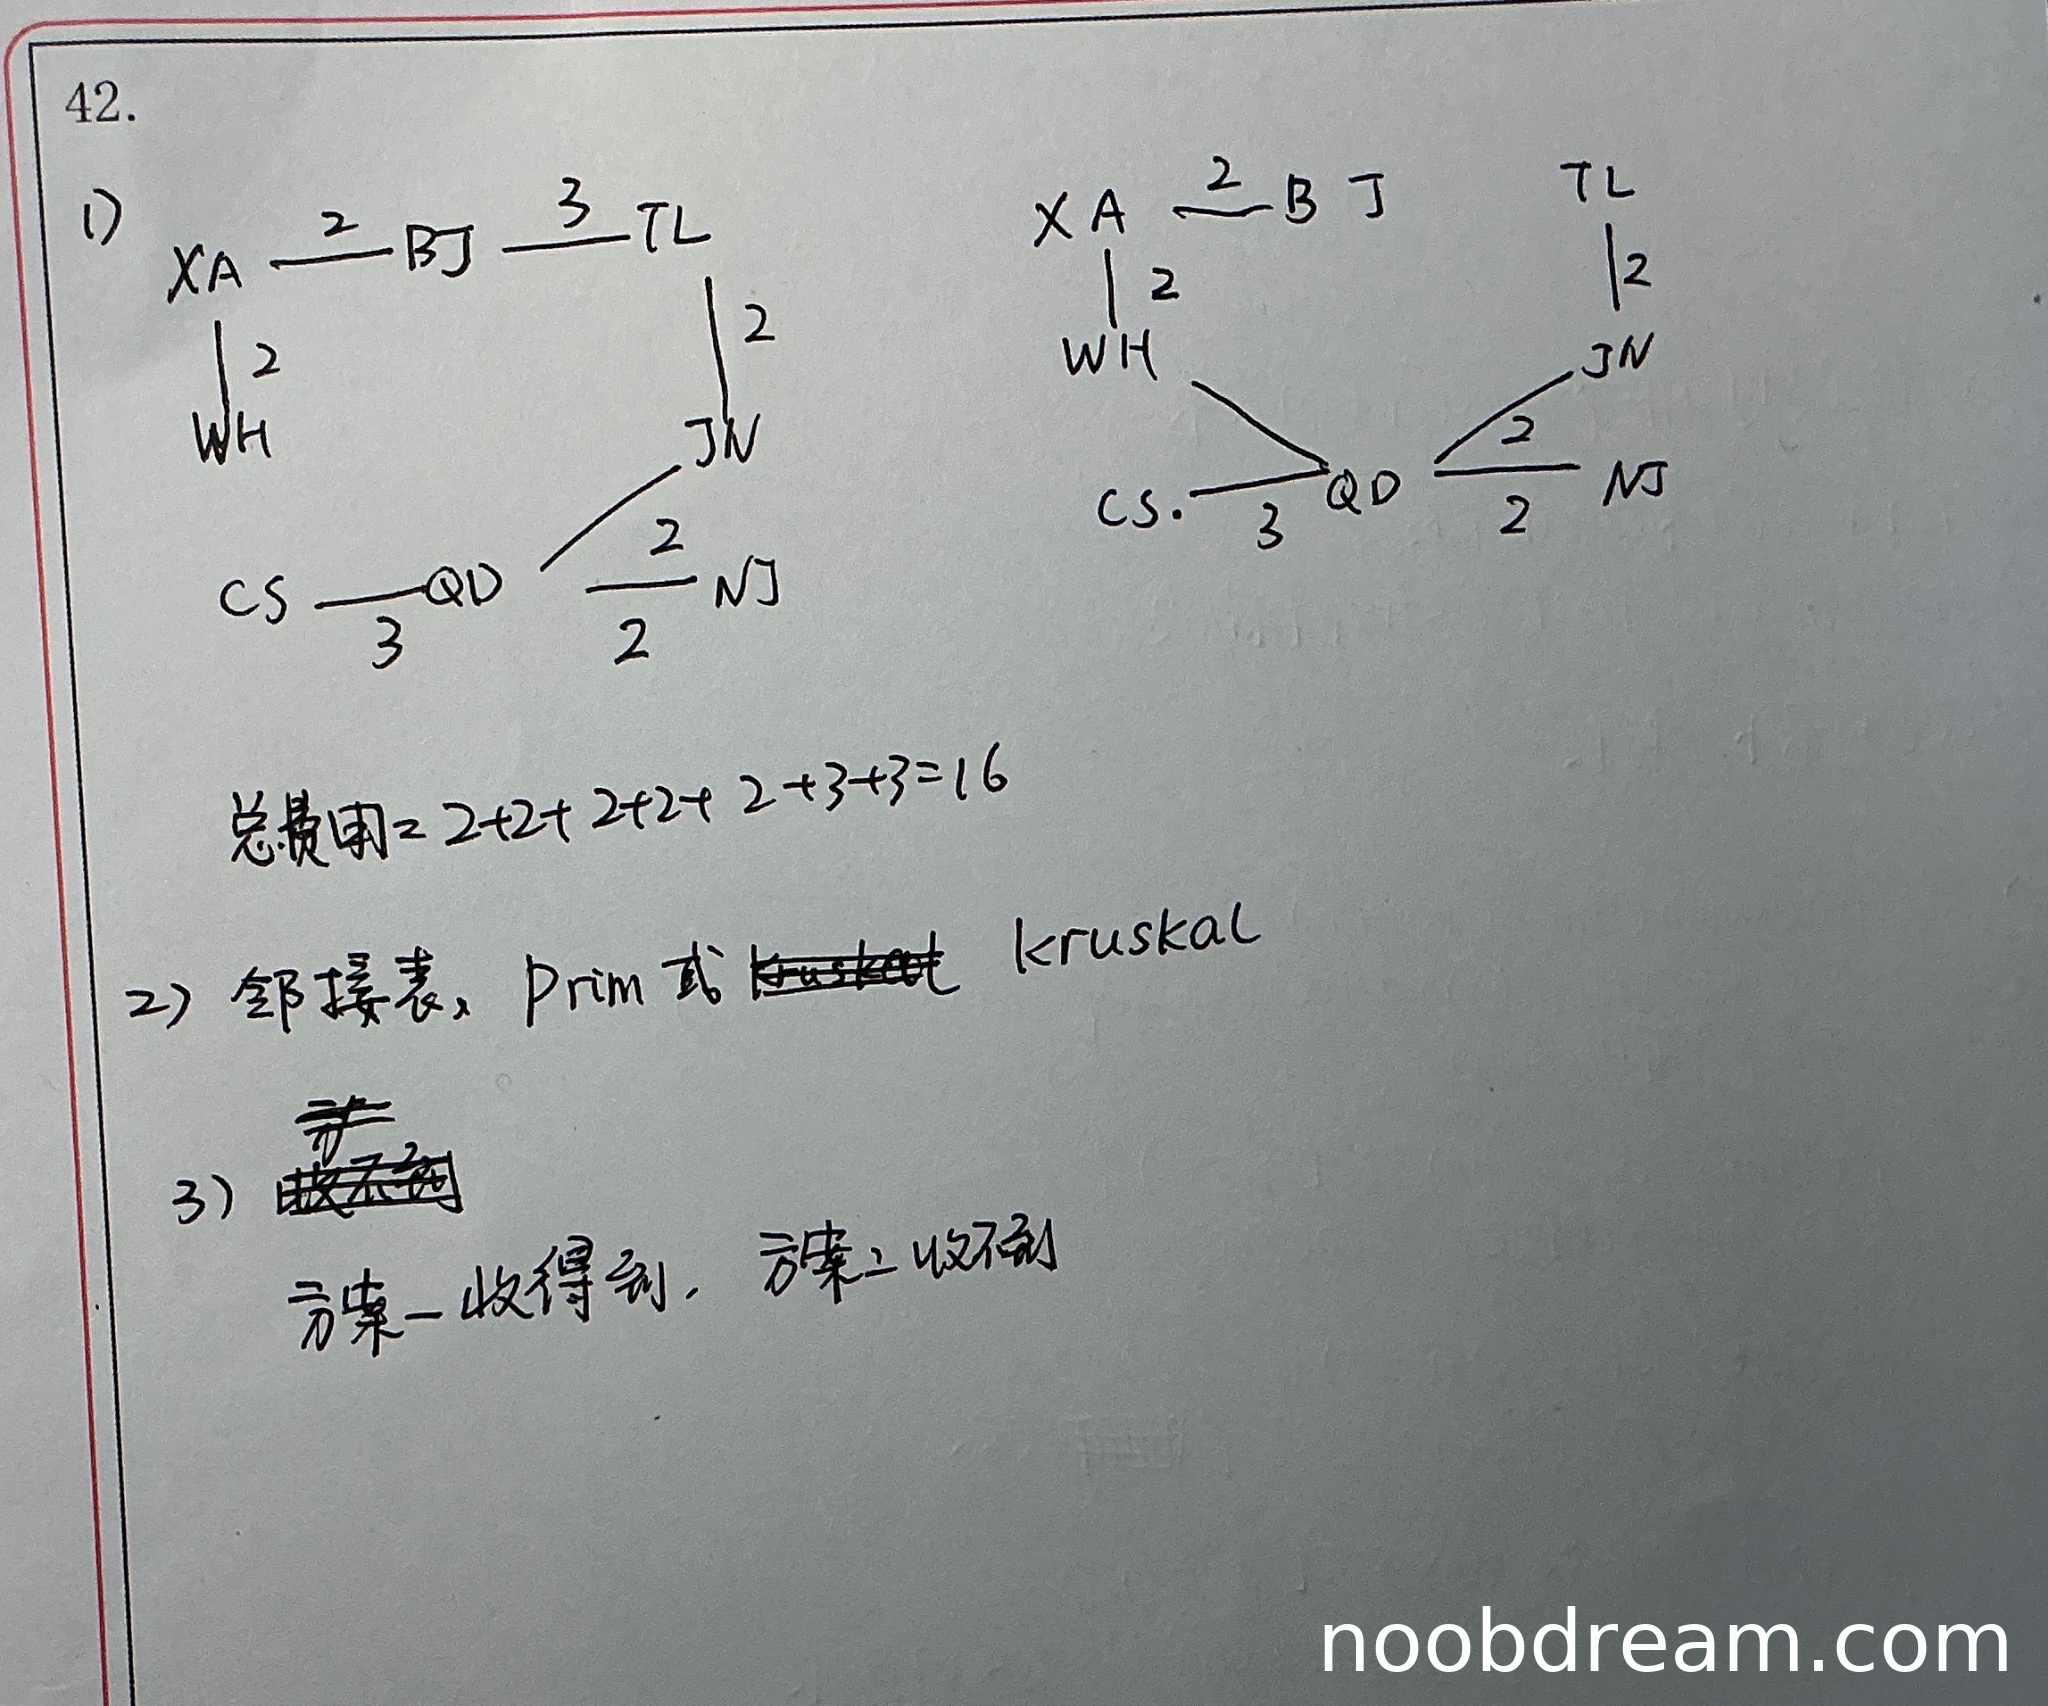 42.
1)
XA 2 BJ 3 TL
2 2
WH JN
2
CS 3 QD 2 NJ
XA 2 BJ TL
2 2
WH JN
2
CS. 3 QD 2 NJ
总费用=2+2+2+2+2+3+3=16
2) 邻接表、Prim 或 kruskal kruskal
3)
方案一收得到. 方案二收不到
noobdream.com